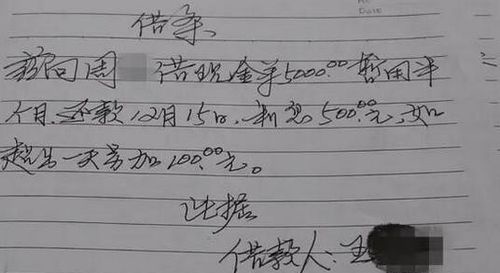 借条
兹向周 借现金¥5000.00暂用半
个月.还款12月15日.利息500.00元.如
超出一天另加100.00元。
此据
借款人:王